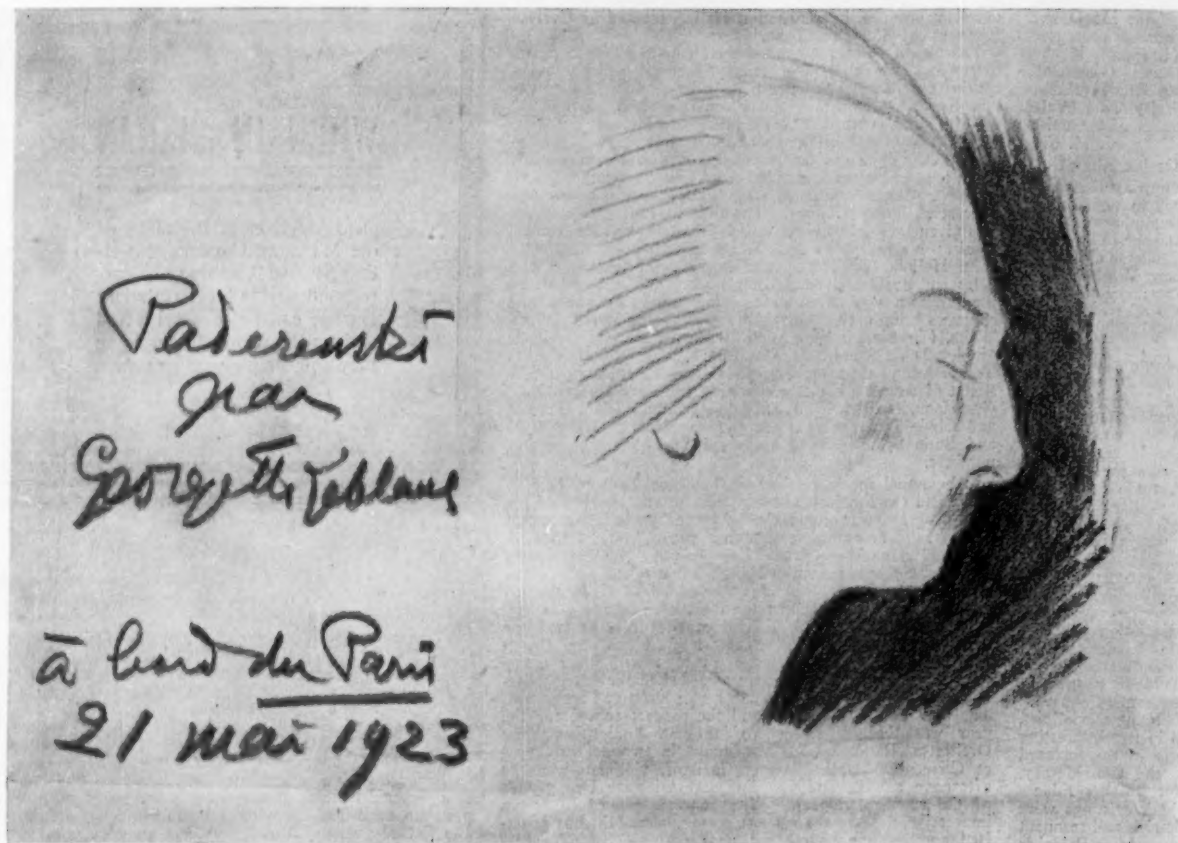 Paderewski
par
Georgette Leblanc
à bord du Paris
21 mai 1923